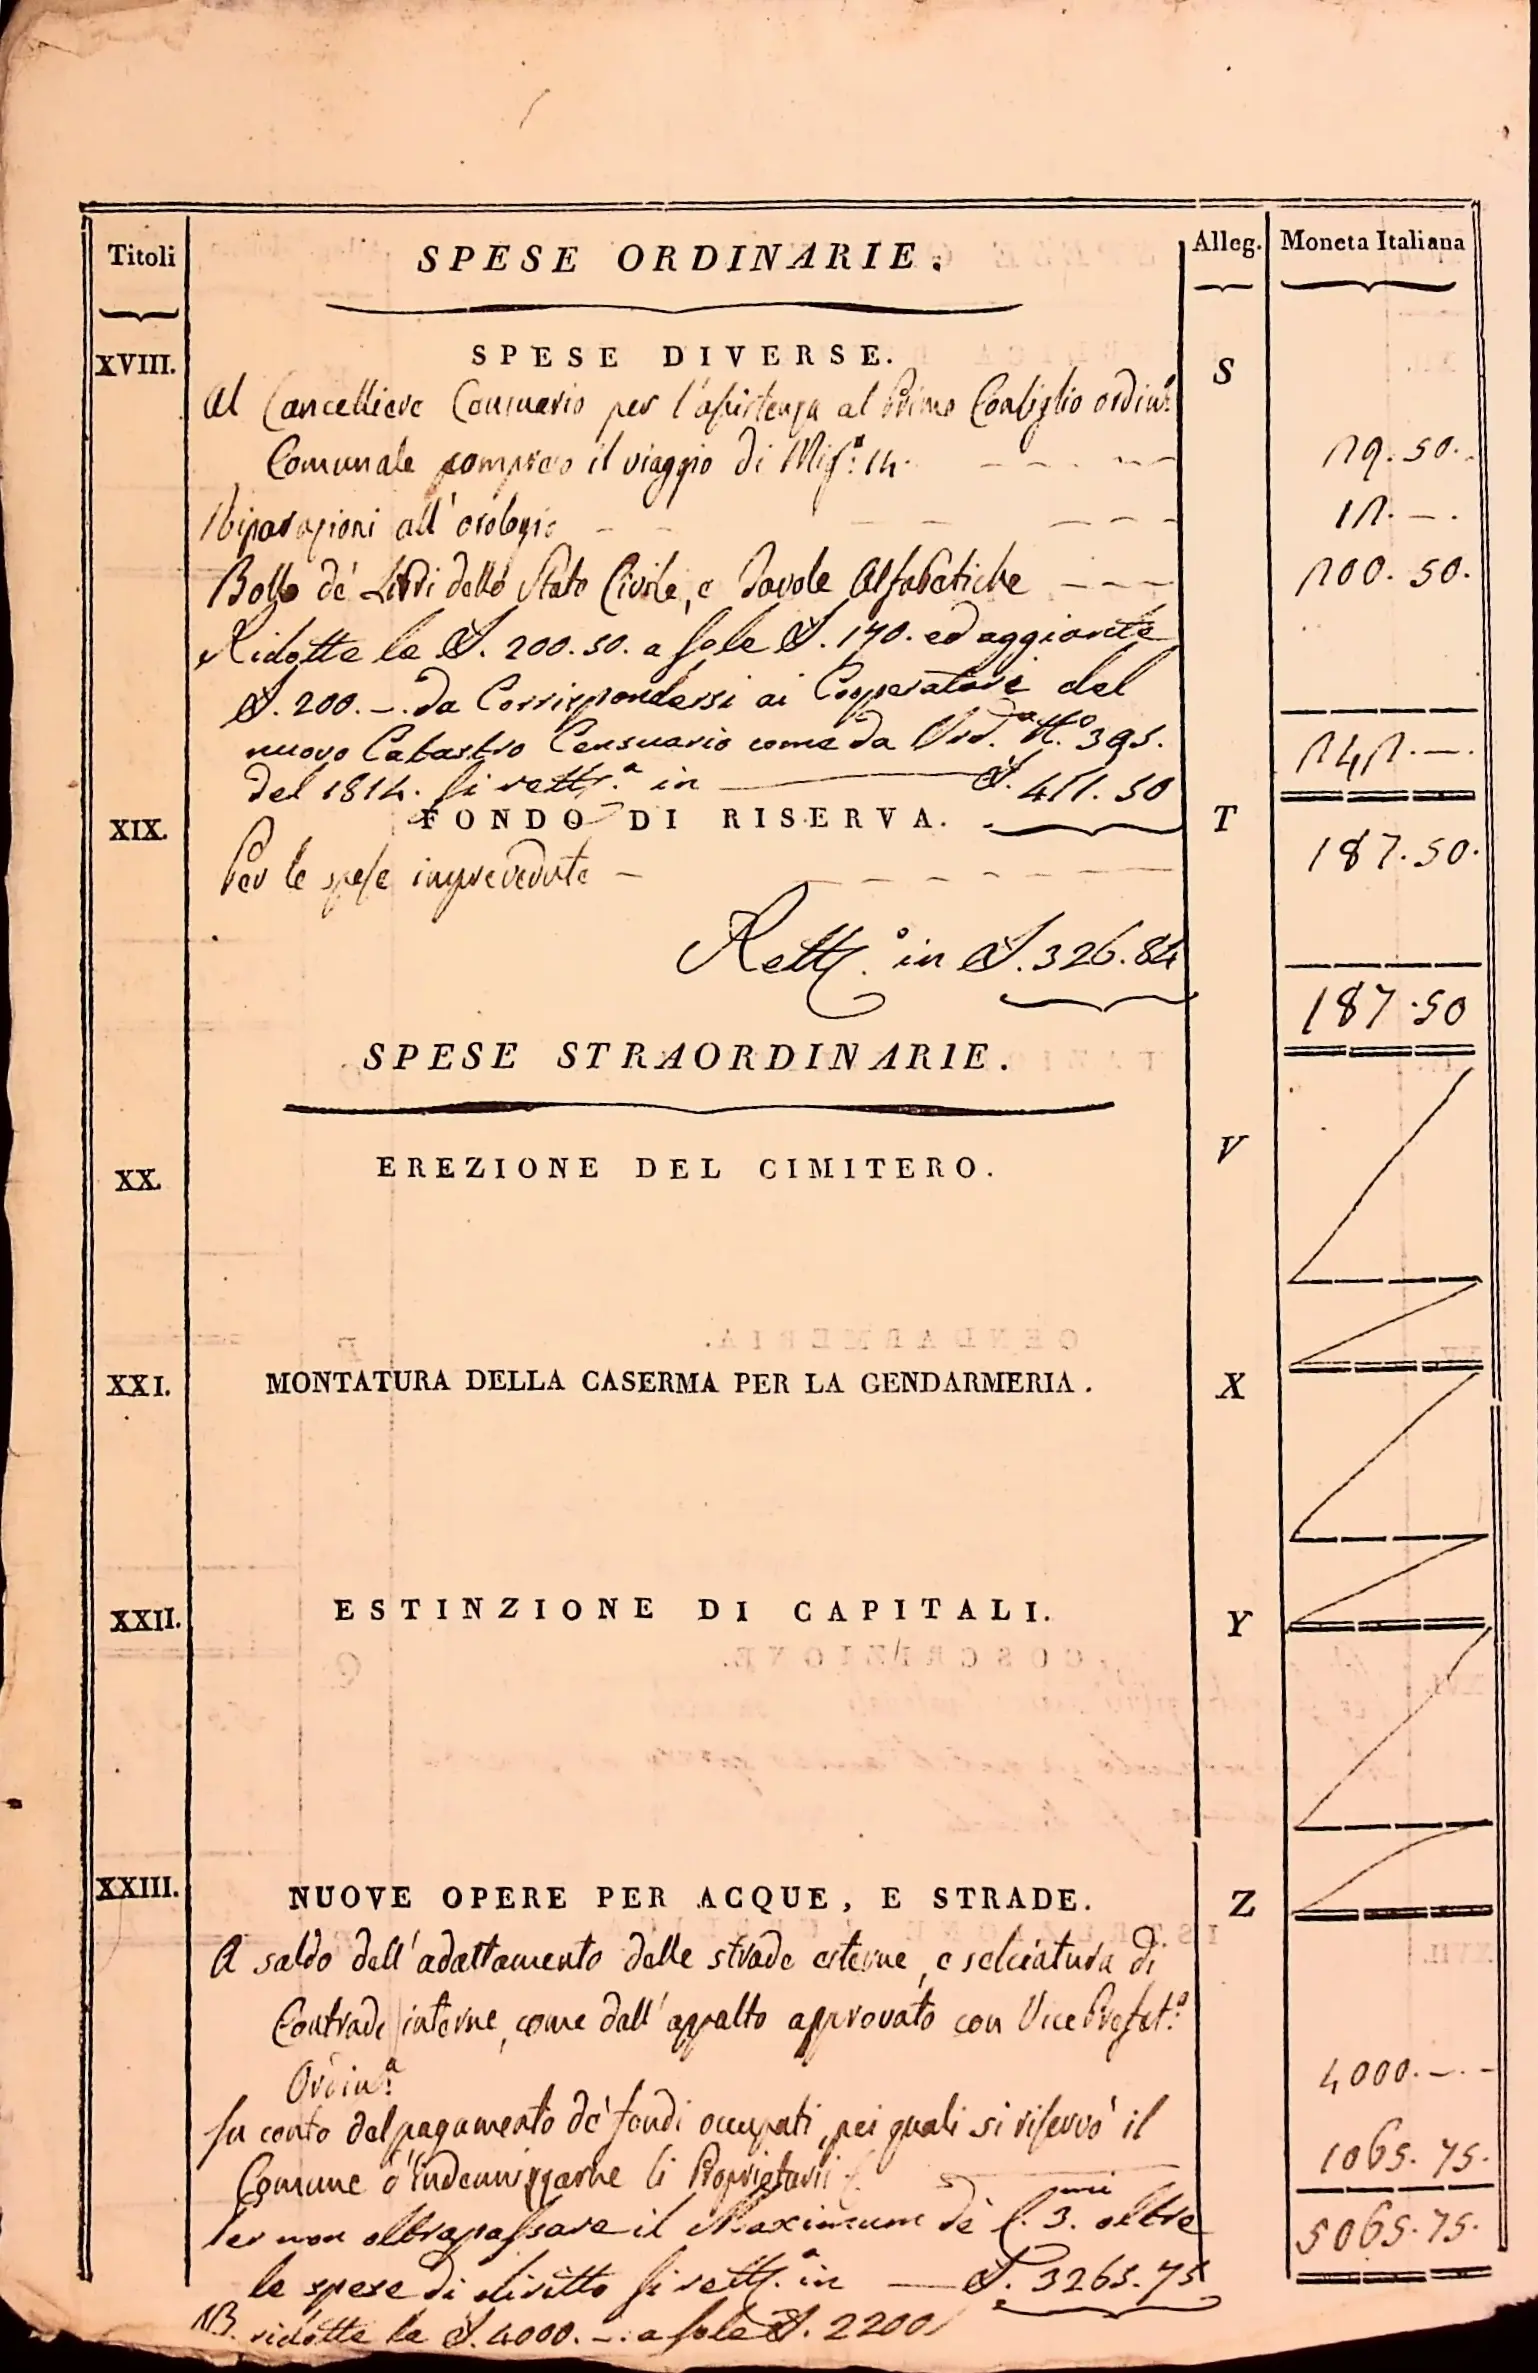 Titoli
SPESE ORDINARIE.
Alleg.
Moneta Italiana
XVIII.
SPESE DIVERSE.
S
Al Cancelliere Censuario per l'assistenza al Primo Consiglio ordin.º
Comunale compreso il viaggio di Mig.ª 14.
29.50.
Riparazioni all'orologio
12.—.
Bollo de' Libri dello Stato Civile, e Tavole Alfabetiche
200.50.
Ridotte le £. 200.50. a sole £. 170. ed aggiunte
£. 200.—. da Corrispondersi ai Cooperatori del
nuovo Catastro Censuario come da Ord.ª N.º 395.
242.—.
del 1814. si rett.ª in £. 411.50
XIX.
FONDO DI RISERVA.
T
Per le spese imprevedute
187.50.
Rett.º in £. 326.84
187.50
SPESE STRAORDINARIE.
XX.
EREZIONE DEL CIMITERO.
V
XXI.
MONTATURA DELLA CASERMA PER LA GENDARMERIA.
X
XXII.
ESTINZIONE DI CAPITALI.
Y
XXIII.
NUOVE OPERE PER ACQUE, E STRADE.
Z
A saldo dell'adattamento delle strade esterne, e selciatura di
Contrade interne, come dall'appalto approvato con Vice Prefet.ª
Ordin.ª
4000.—.
In conto del pagamento de' fondi occupati, pei quali si riservò il
Comune d'Indennizzarne li Proprietarii
1065.75.
Per non oltrapassare il Maximum de C.mi 3. oltre
5065.75.
le spese di diritto si rett.ª in £. 3265.75
NB. ridotte le £. 4000.—. a sole £. 2200